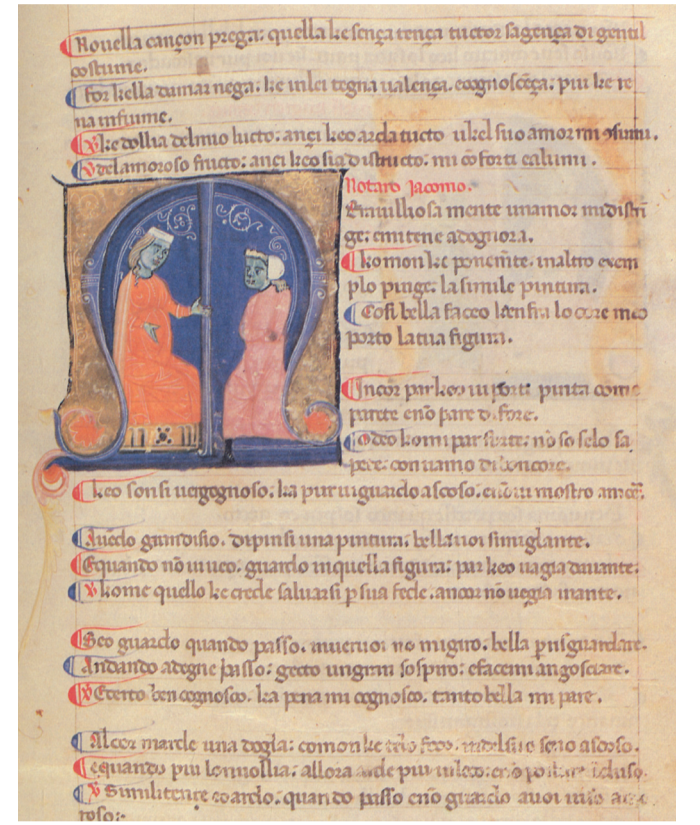 Novella cançon prega: quella ke sença tença tuctor sagença di gentil
costume.
For kella damar nega: ke inlei regna valença, ecognoscẽça, piu ke re
na infiume.
ke dollia delmio lucto: ançi keo arda tucto
delamoroso fructo: anci keo sia distructo: mi cõforti ealumi.
Notaro Jacomo.
Eravilliosa mente unamor midistrĩ
ge: emitene adognora.
komon ke ponemẽte. inaltro exem
plo pinge: la simile pintura.
Cosi bella faceo kenfra lo core meo
porto la tua figura.
Incor par keo vi porti pinta come
parete enõ pare di fore.
keo son si vergognoso: ka pur viguardo ascoso. enõ vi mostro amore.
Avẽdo grandisio. dipinsi una pintura: bella voi simiglante.
Equando nõ viveo: guardo inquella figura: par keo vagia davante:
kome quello ke crede salvarsi p sua fede. ancor nõ vegia inante.
Seo guardo quando passo. inver voi no migiro. bella prisguardare.
Andando adogne passo: gecto ungran sospiro: efacemi angosciare.
Ecerto ben cognosco. ka pena mi cognosco. tanto bella mi pare.
Alcor marde una dogla: comon ke tẽ lo foco. indelsuo seno ascoso.
equando piu lonvollia: allora arde piu
Similitente eoardo: quando passo enõ guardo avoi viso
roso: